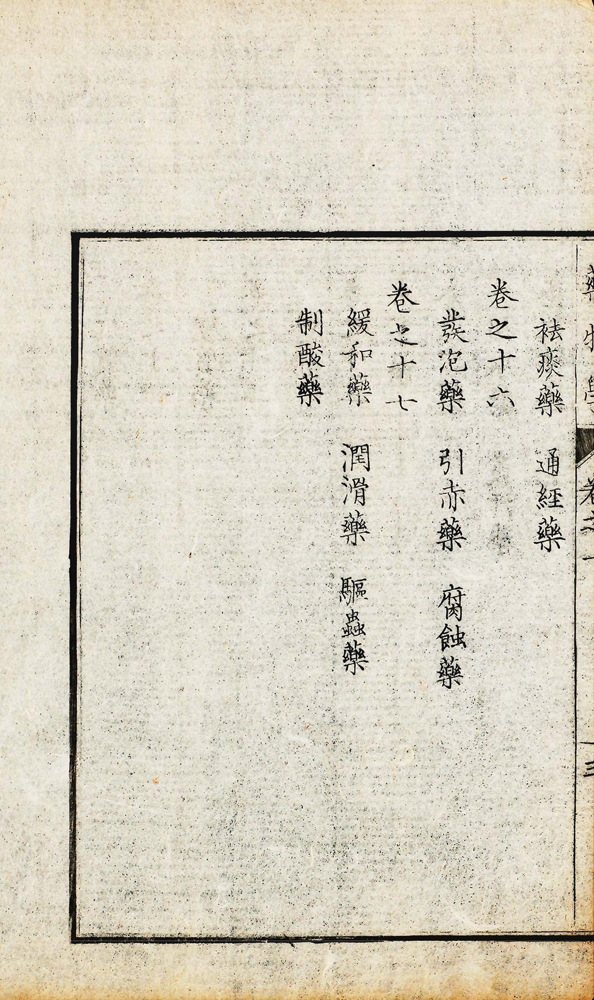 藥物學
卷之一
三
袪痰藥 通經藥
卷之十六
發泡藥 引赤藥 腐蝕藥
卷之十七
緩和藥 潤滑藥 驅蟲藥
制酸藥